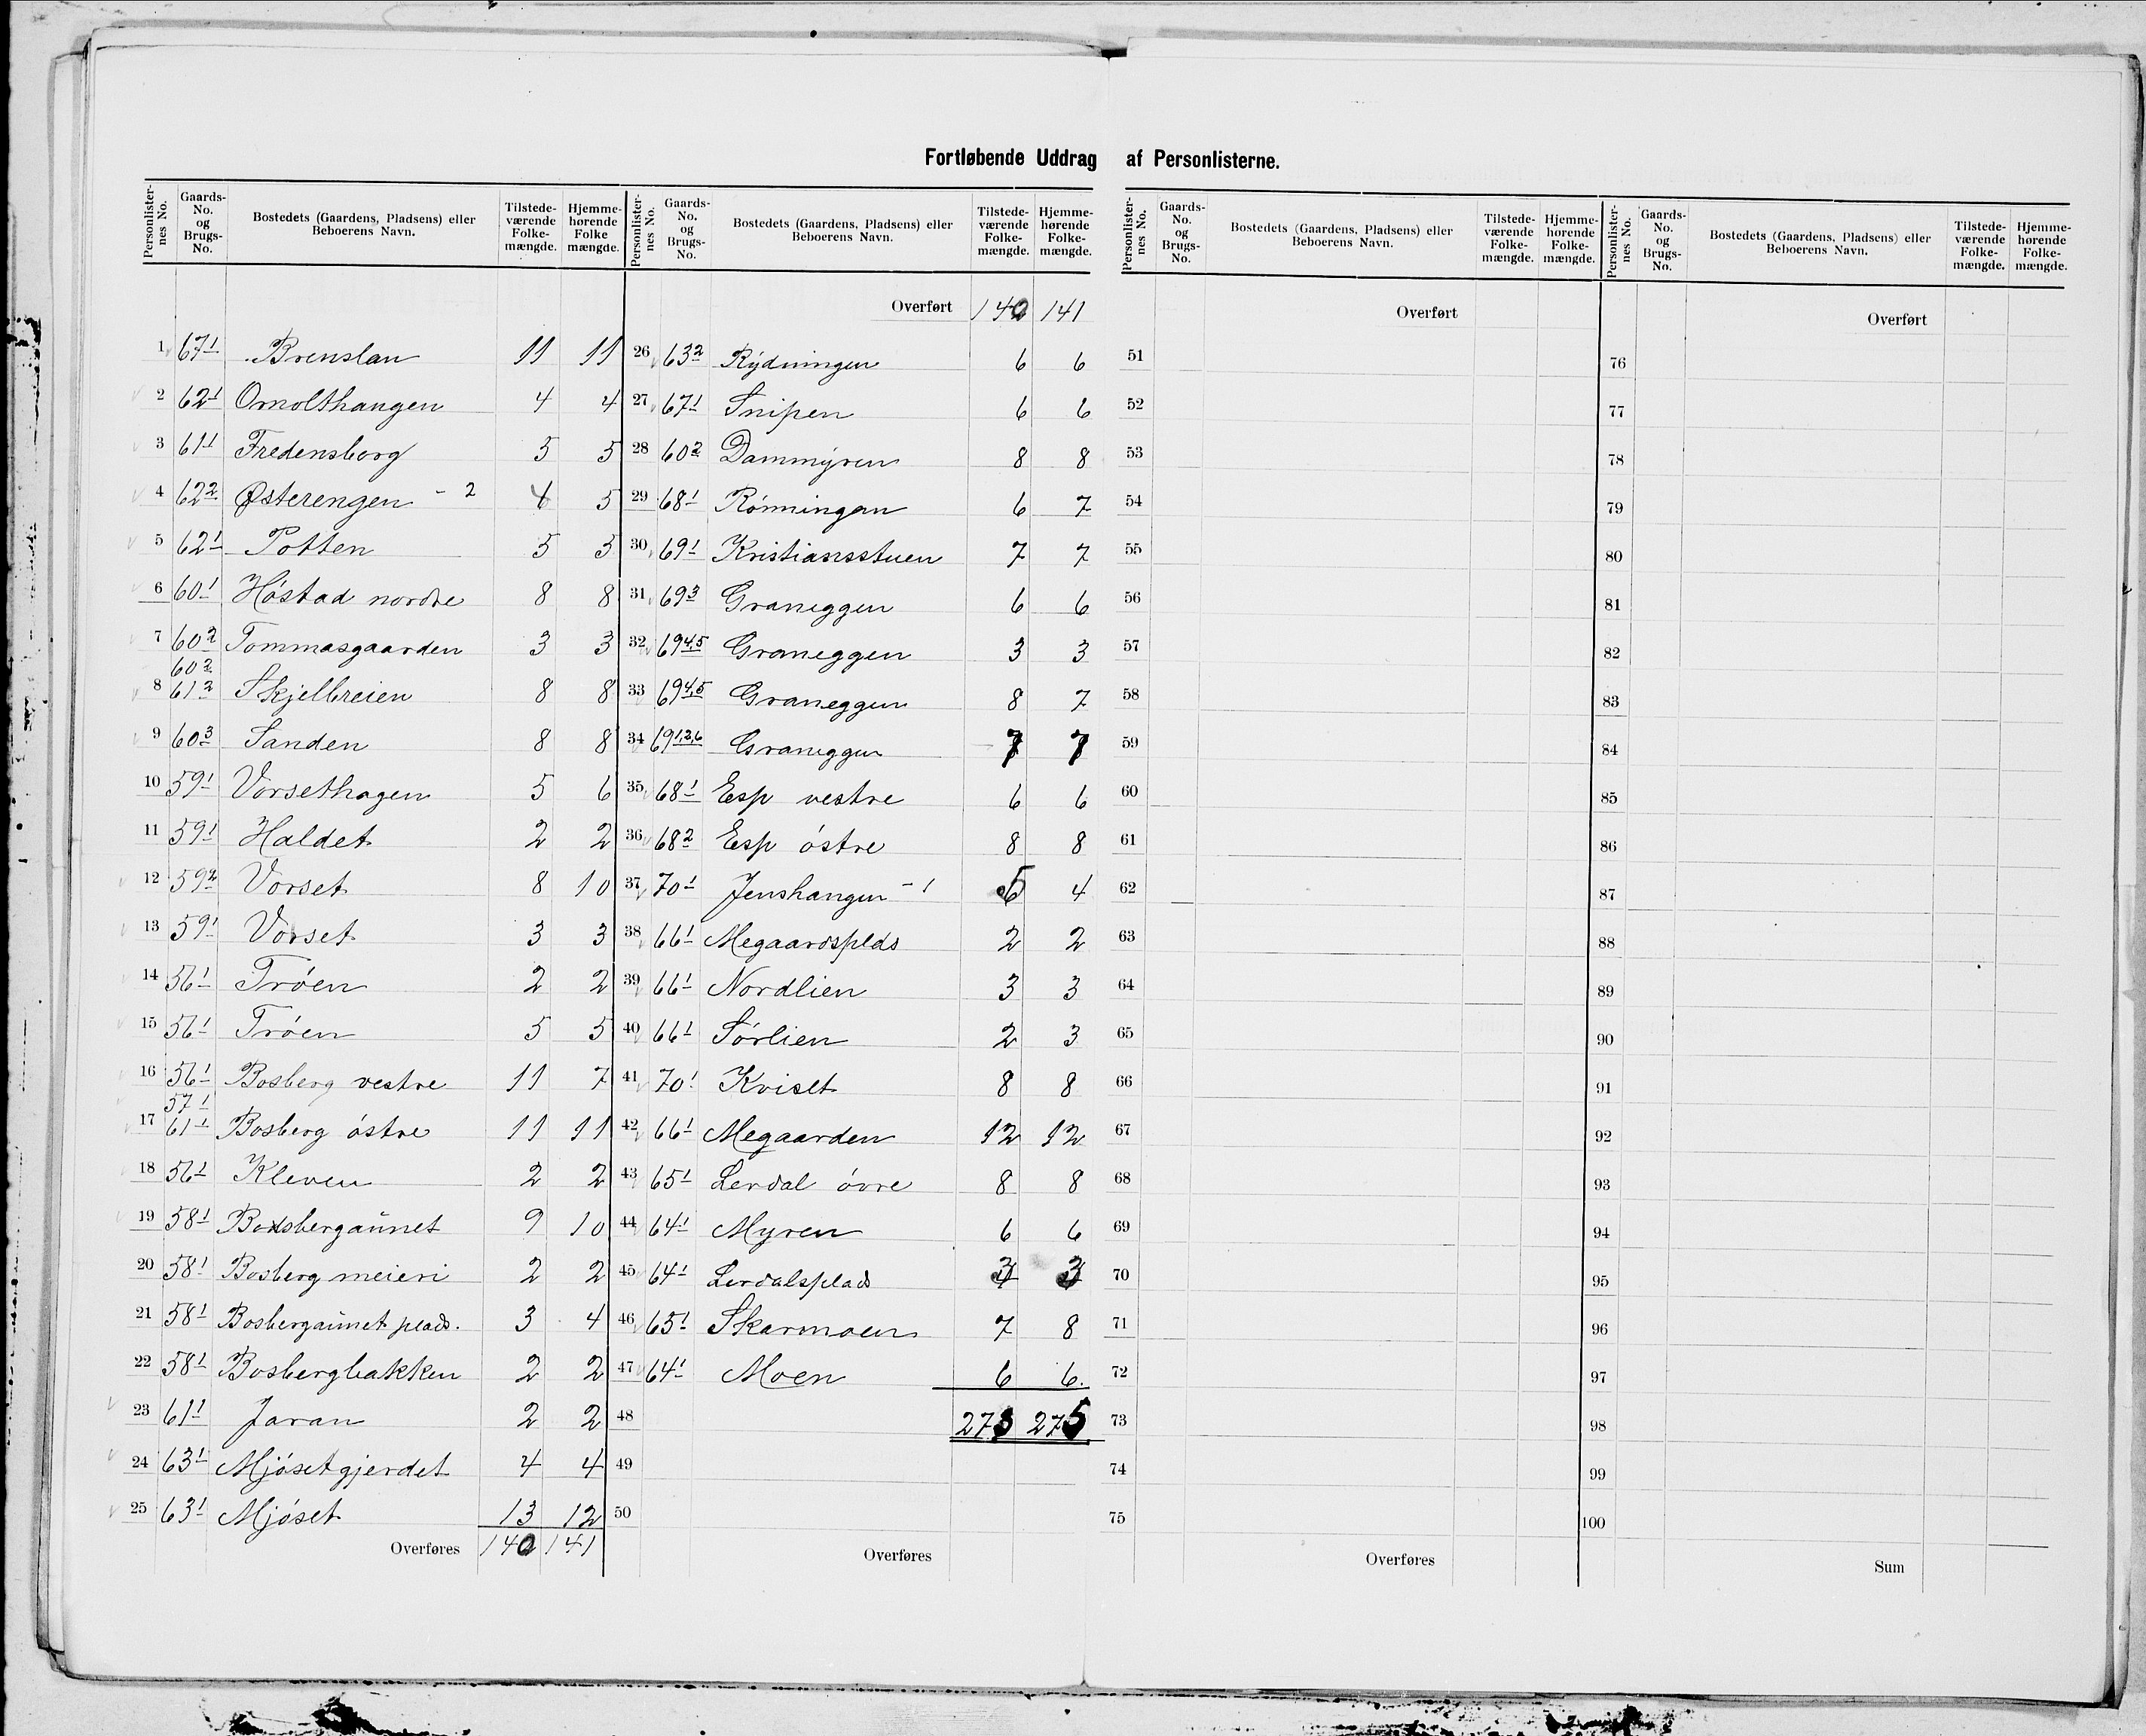 Fortløbende Uddrag af Personlisterne.
Personlisternes No. | Gaards-No. og Brugs-No. | Bostedets (Gaardens, Pladsens) eller Beboerens Navn. | Tilstedeværende Folkemængde. | Hjemmehørende Folke mængde.
1 67¹ Brenslan 11 11
2 62¹ Omolthaugen 4 4
3 61¹ Fredensborg 5 5
4 62² Østerengen - 2 4 5
5 62¹ Potten 5 5
6 60¹ Høstad nordre 8 8
7 60² Tommasgaarden 3 3
60²
8 61² Skjelbreien 8 8
9 60³ Sanden 8 8
10 59¹ Vorsethagen 5 6
11 59¹ Haldet 2 2
12 59² Vorset 8 10
13 59¹ Vorset 3 3
14 56¹ Trøen 2 2
15 56¹ Trøen 5 5
16 56¹ Bosberg vestre 11 7
57¹
17 61¹ Bosberg østre 11 11
18 56¹ Kleven 2 2
19 58¹ Bosbergaunet 9 10
20 58¹ Bosberg meieri 2 2
21 58¹ Bosbergaunet plads. 3 4
22 58¹ Bosbergbakken 2 2
23 61¹ Jaran 2 2
24 63¹ Mjøsetgjerdet 4 4
25 63¹ Mjøset 13 12
Overføres 140 141
Personlisternes No. | Gaards-No. og Brugs-No. | Bostedets (Gaardens, Pladsens) eller Beboerens Navn. | Tilstedeværende Folkemængde. | Hjemmehørende Folkemængde.
Overført 140 141
26 63² Rydningen 6 6
27 67¹ Snipen 6 6
28 60² Dammyren 8 8
29 68¹ Rønningen 6 7
30 69¹ Kristiansstuen 7 7
31 69³ Graneggen 6 6
32 69⁴,⁵ Graneggen 3 3
33 69⁴,⁵ Graneggen 8 7
34 69¹,²,⁶ Graneggen 7 7
35 68¹ Esp vestre 6 6
36 68² Esp østre 8 8
37 70¹ Jenshaugen - 1 5 4
38 66¹ Megaardsplds 2 2
39 66¹ Nordlien 3 3
40 66¹ Sørlien 2 3
41 70¹ Kviset 8 8
42 66¹ Megaarden 12 12
43 65¹ Lerdal øvre 8 8
44 64¹ Myren 6 6
45 64¹ Lerdalsplads 3 3
46 65¹ Skarmoen 7 8
47 64¹ Moen 6 6.
48 273 275
49
50
Overføres
Personlisternes No. | Gaards-No. og Brugs-No. | Bostedets (Gaardens, Pladsens) eller Beboerens Navn. | Tilstedeværende Folkemængde. | Hjemmehørende Folkemængde.
Overført
51
52
53
54
55
56
57
58
59
60
61
62
63
64
65
66
67
68
69
70
71
72
73
74
75
Overføres
Personlisternes No. | Gaards-No. og Brugs-No. | Bostedets (Gaardens, Pladsens) eller Beboerens Navn. | Tilstedeværende Folkemængde. | Hjemmehørende Folkemængde.
Overført
76
77
78
79
80
81
82
83
84
85
86
87
88
89
90
91
92
93
94
95
96
97
98
99
100
Sum